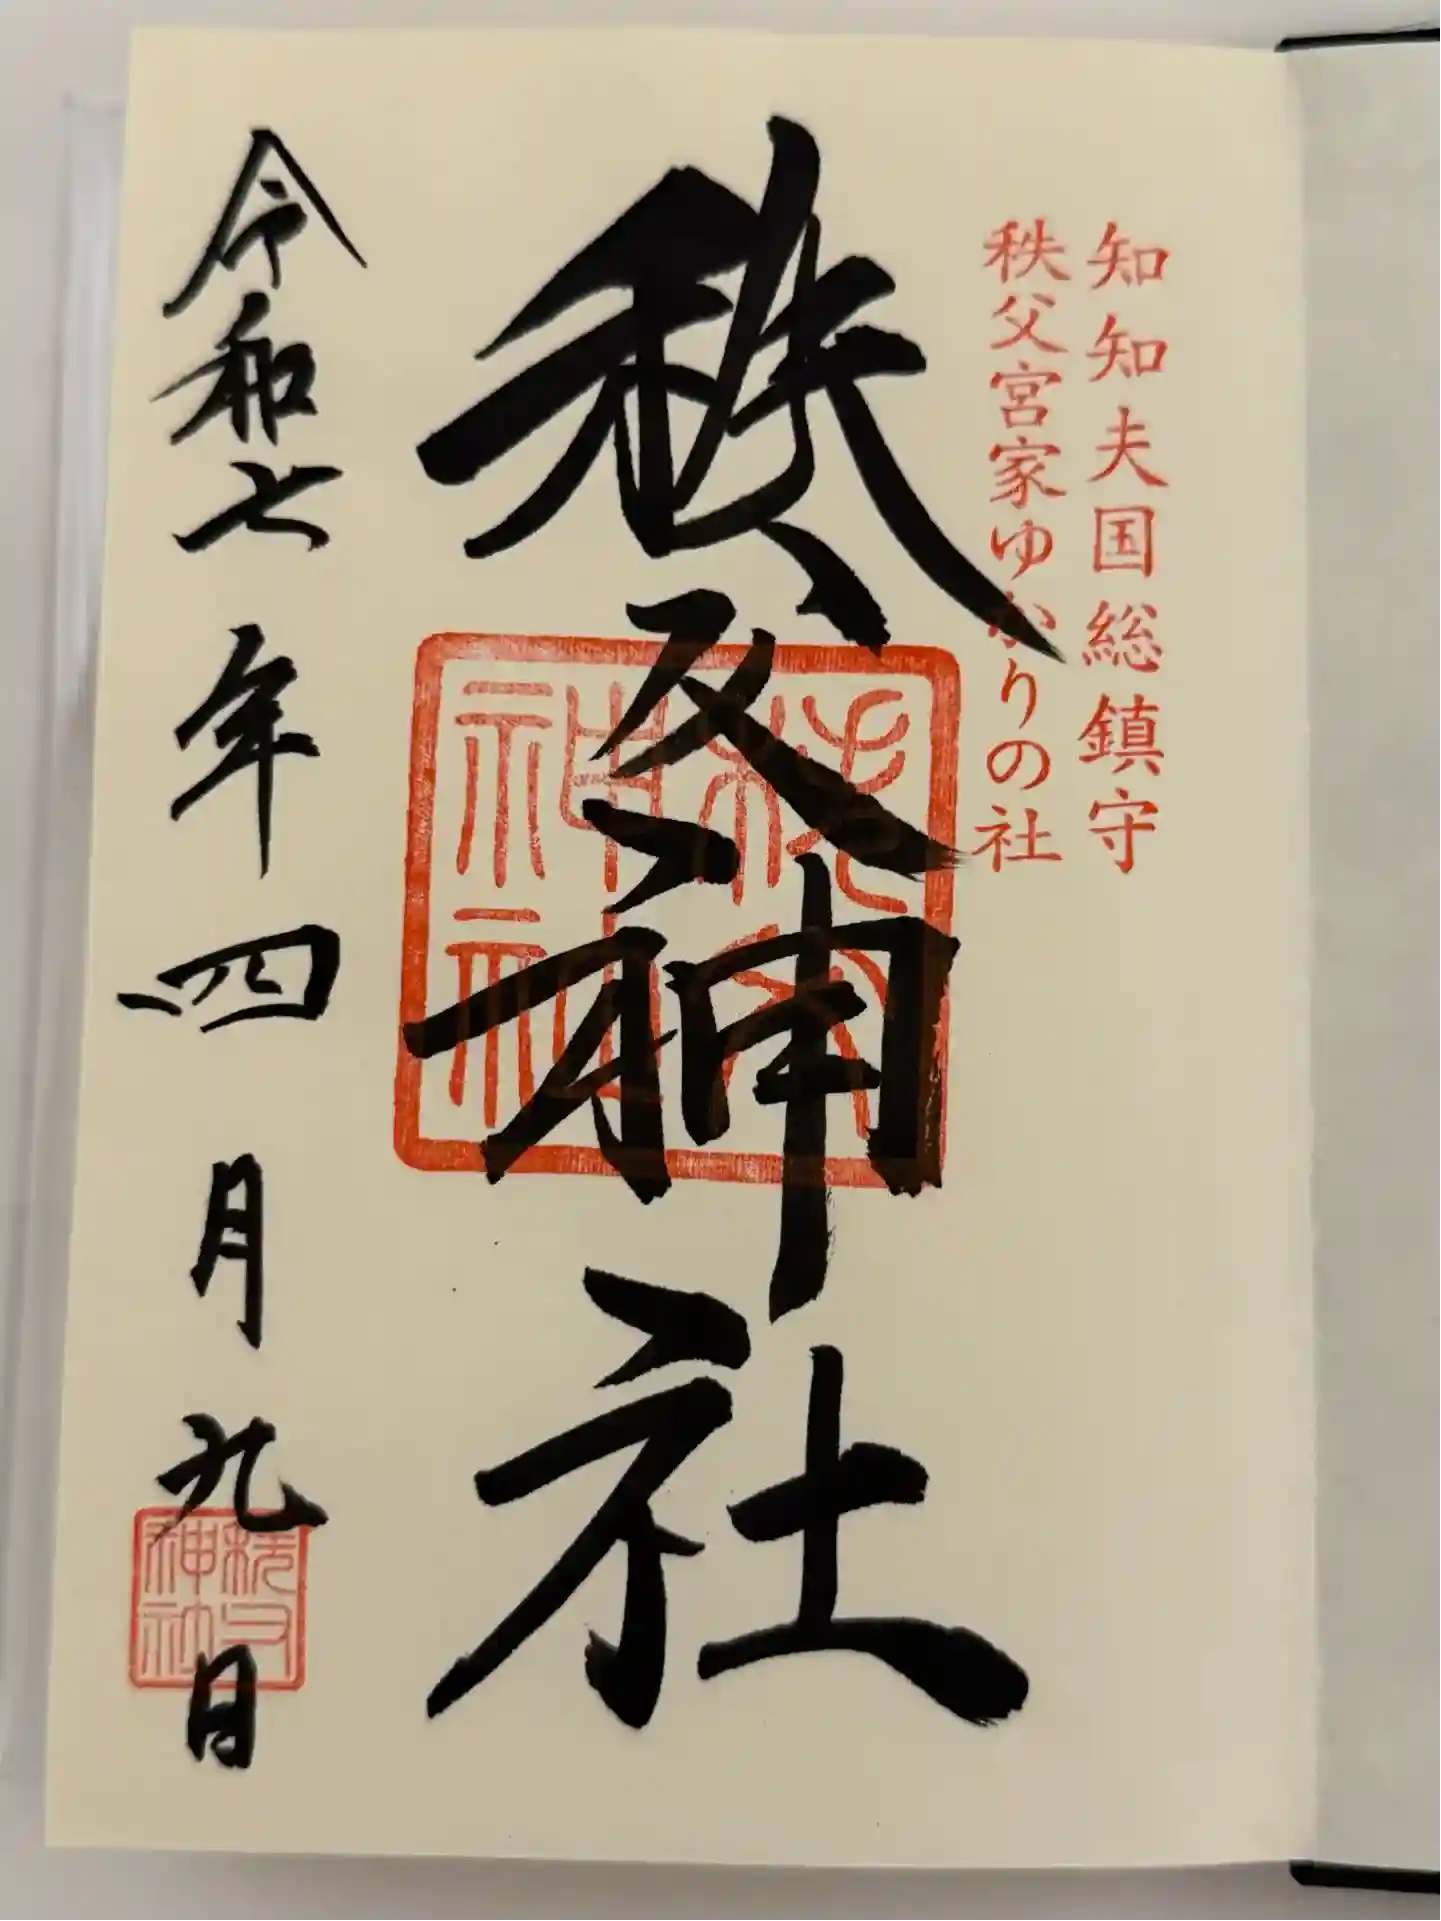 知知夫国総鎮守
秩父宮家ゆかりの社
秩父神社
秩父神社
令和七年四月九日
秩父神社